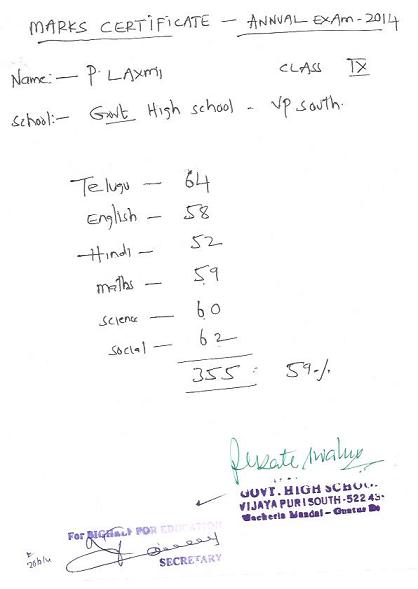 MARKS CERTIFICATE - ANNUAL EXAM - 2014
Name:- P. LAXMI CLASS IX
School:- Govt High school - VP South.
Telugu - 64
English - 58
Hindi - 52
maths - 59
science - 60
social - 62
355 : 59%
GOVT. HIGH SCHOOL
VIJAYA PURI SOUTH - 522 43
Macherla Mandal - Guntur
For BIGHELP FOR EDUCATION
SECRETARY